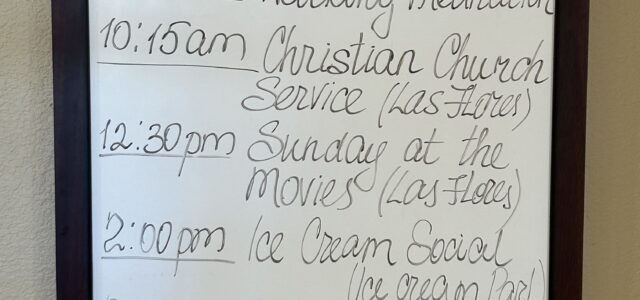 10:15am Christian Church
Service (Las Flores)
12:30pm Sunday at the
Movies (Las Flores)
2:00pm Ice Cream Social
(Ice cream Parl)